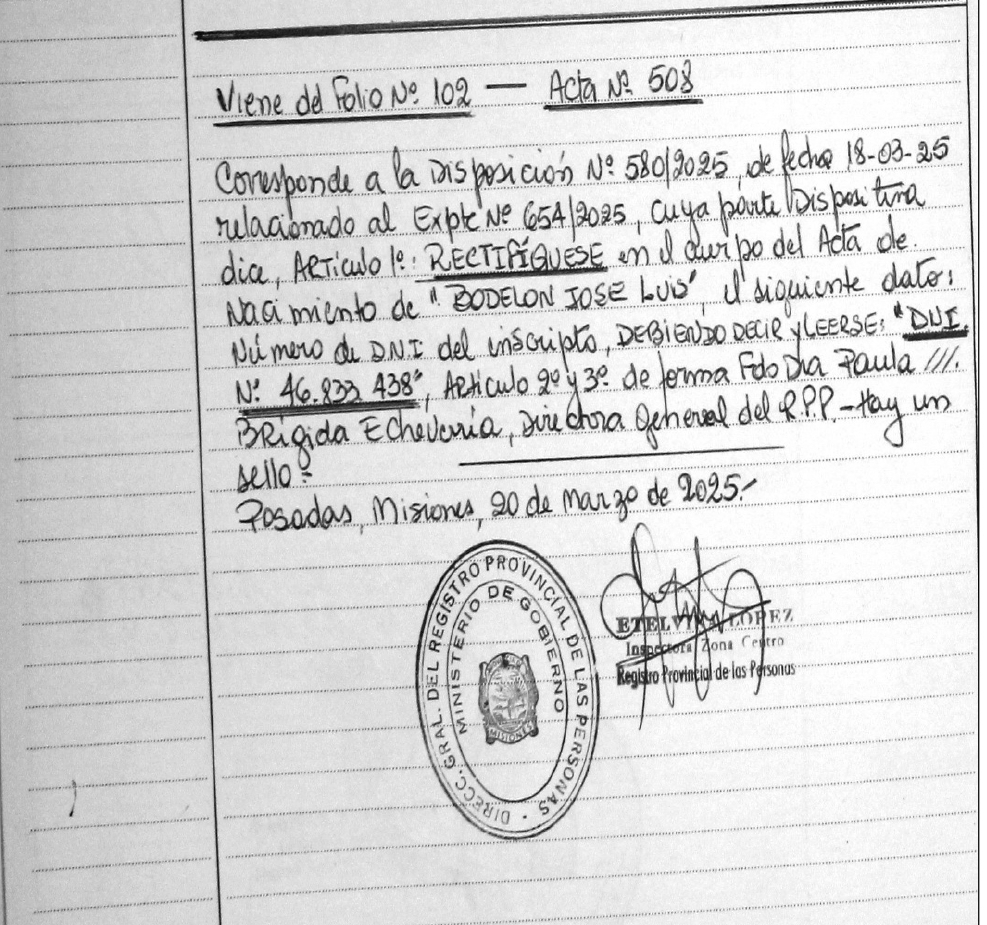 Viene del Folio Nº 102 — Acta Nº 508
Corresponde a la Disposición Nº 580/2025, de fecha 18-03-25
relacionado al Expte Nº 654/2025, cuya parte Dispositiva
dice, Artículo 1º: RECTIFÍQUESE en el cuerpo del Acta de
Nacimiento de "BODELON JOSE LUIS", el siguiente dato:
Número de D.N.I del inscripto, DEBIENDO DECIR y LEERSE: "DNI
Nº 46.833.438", Artículo 2º y 3º de forma Fdo Dra Paula ///.
Brigida Echeverría, Directora General del R.P.P. - Hay un
sello.-
Posadas, Misiones, 20 de Marzo de 2025.-
DIRECC. GRAL. DEL REGISTRO PROVINCIAL DE LAS PERSONAS
MINISTERIO DE GOBIERNO
MISIONES
LOPEZ
Inspectora Zona Centro
Registro Provincial de las Personas